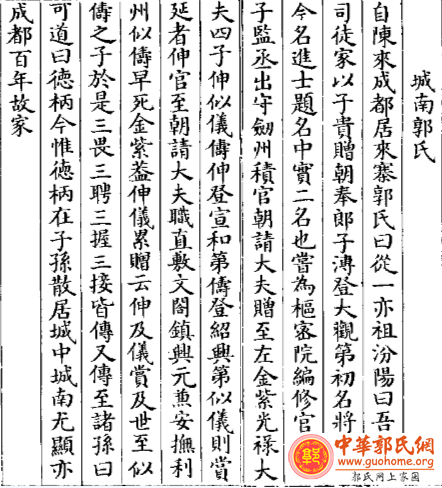 城南郭氏
自陳來成都居來寨郭氏曰從一亦祖汾陽曰吾
司徒家以子貴贈朝奉郎子溥登大觀第初名將
今名進士題名中實二名也嘗為樞密院編修官
子監丞出守劒州積官朝請大夫贈至左金紫光祿大
夫四子伸似儀儔伸登宣和第儔登紹興第似儀則賞
延者伸官至朝請大夫職直敷文閣鎮興元兼安撫利
州似儔早死金紫蓋伸儀累贈云伸及儀賞及世至似
儔之子於是三畏三聘三握三接皆傳又傳至諸孫曰
可道曰德柄今惟德柄在子孫散居城中城南尤顯亦
成都百年故家
中華郭氏網
www.guohome.org
郭氏网上家園